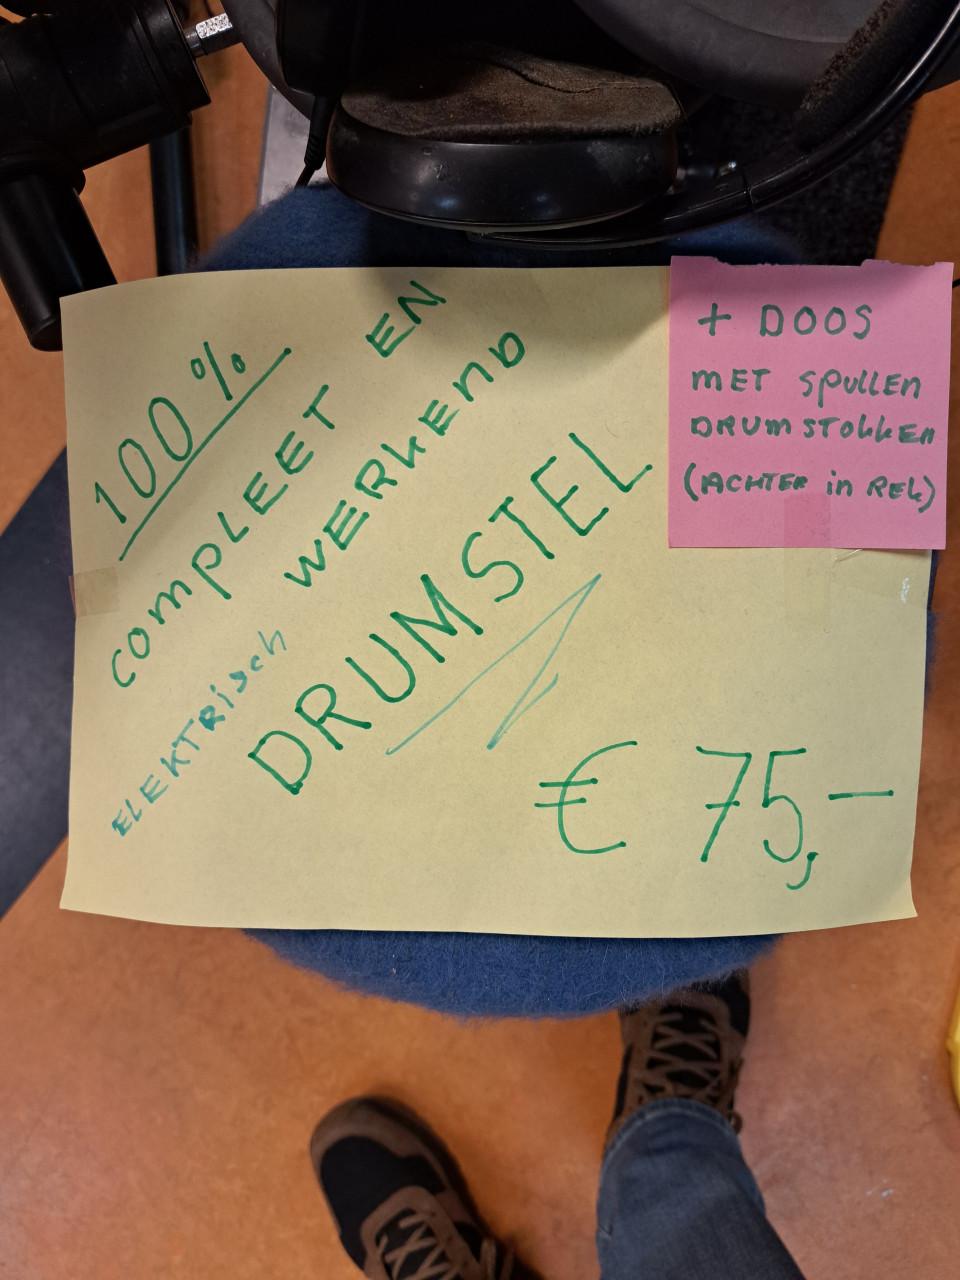 100%
COMPLEET EN
WERKEND
ELEKTRISCH
DRUMSTEL
€ 75,-
+ DOOS
MET SPULLEN
DRUMSTOKKEN
(ACHTER in REK)